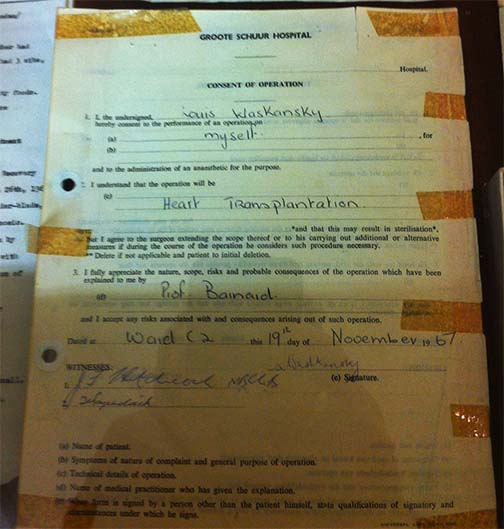 GROOTE SCHUUR HOSPITAL
Hospital.
CONSENT OF OPERATION
1. I, the undersigned, Louis Waskansky
hereby consent to the performance of an operation on
(a) myself. , for
(b)
and to the administration of an anaesthetic for the purpose.
2. I understand that the operation will be
(c) Heart Transplantation.
*and that this may result in sterilisation*.
But I agree to the surgeon extending the scope thereof or to his carrying out additional or alternative
measures if during the course of the operation he considers such procedure necessary.
** Delete if not applicable and patient to initial deletion.
3. I fully appreciate the nature, scope, risks and probable consequences of the operation which have been
explained to me by
(d) Prof Barnard.
and I accept any risks associated with and consequences arising out of such operation.
Dated at Ward C2 this 19th day of November 1967
Waskansky
WITNESSES: (e) Signature.
1.
2.
(a) Name of patient.
(b) Symptoms of nature of complaint and general purpose of operation.
(c) Technical details of operation.
(d) Name of medical practitioner who has given the explanation.
(e) When form is signed by a person other than the patient himself, state qualifications of signatory and
circumstances under which he signs.